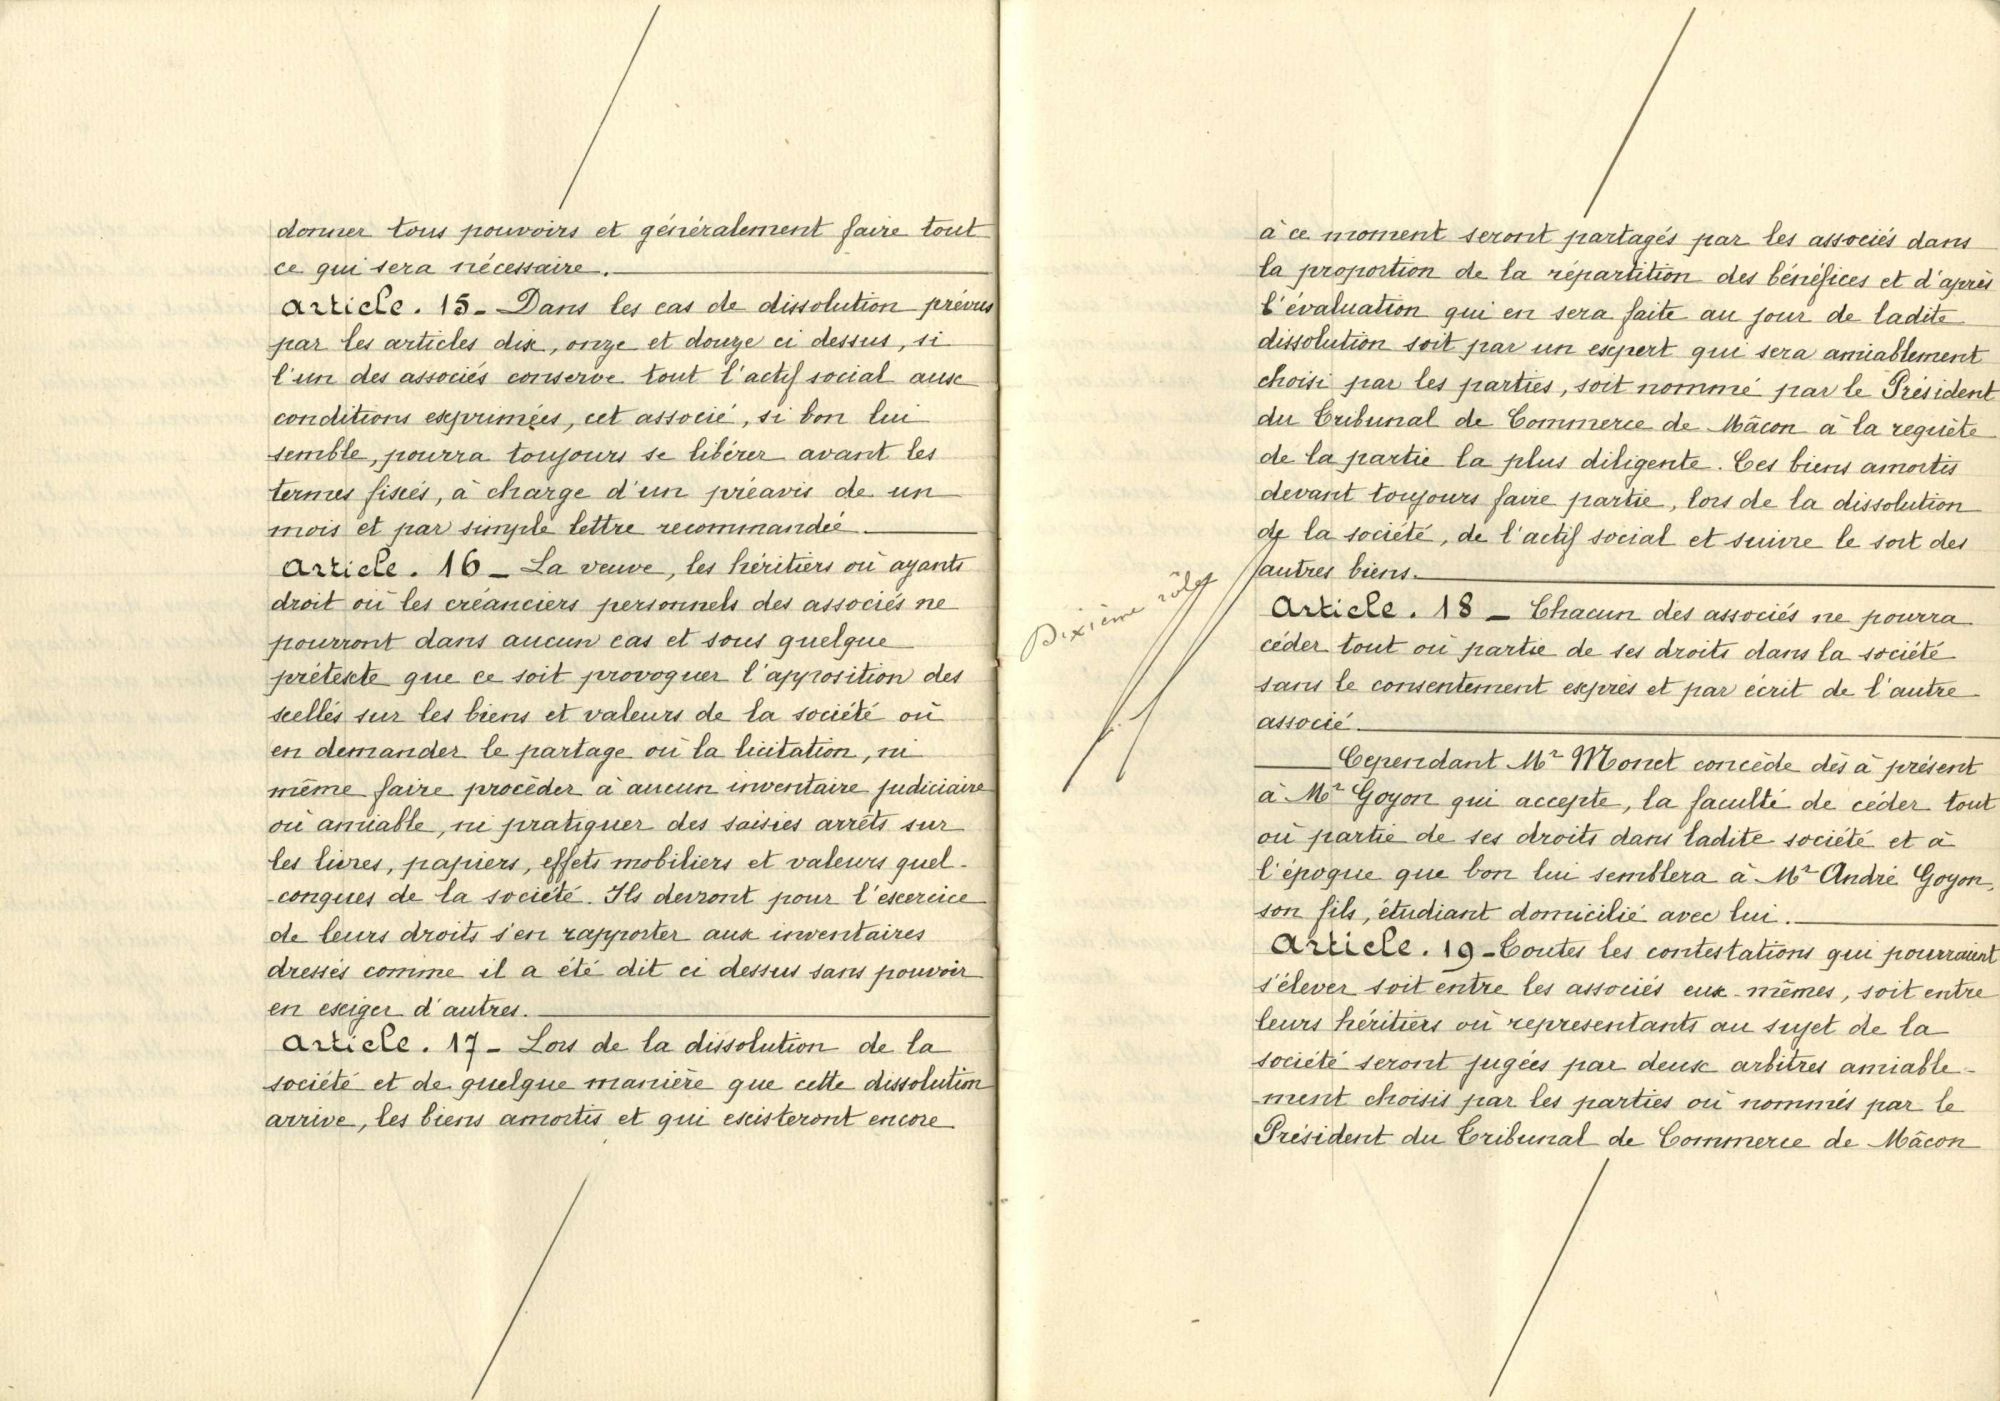 donner tous pouvoirs et généralement faire tout
ce qui sera nécessaire.
Article. 15 - Dans les cas de dissolution prévus
par les articles dix, onze et douze ci dessus, si
l'un des associés conserve tout l'actif social aux
conditions exprimées, cet associé, si bon lui
semble, pourra toujours se libérer avant les
termes fixés, à charge d'un préavis de un
mois et par simple lettre recommandée.
Article. 16 - La veuve, les héritiers où ayants
droit où les créanciers personnels des associés ne
pourront dans aucun cas et sous quelque
prétexte que ce soit provoquer l'apposition des
scellés sur les biens et valeurs de la société où
en demander le partage où la licitation, ni
même faire procéder à aucun inventaire judiciaire
où amiable, ni pratiquer des saisies arrêts sur
les livres, papiers, effets mobiliers et valeurs quel-
-conques de la société. Ils devront pour l'exercice
de leurs droits s'en rapporter aux inventaires
dressés comme il a été dit ci dessus sans pouvoir
en exiger d'autres.
Article. 17 - Lors de la dissolution de la
société et de quelque manière que cette dissolution
arrive, les biens amortis et qui existeront encore
à ce moment seront partagés par les associés dans
la proportion de la répartition des bénéfices et d'après
l'évaluation qui en sera faite au jour de ladite
dissolution soit par un expert qui sera amiablement
choisi par les parties, soit nommé par le Président
du Tribunal de Commerce de Mâcon à la requête
de la partie la plus diligente. Ces biens amortis
devant toujours faire partie, lors de la dissolution
de la société, de l'actif social et suivre le sort des
autres biens.
Dixième rôle
Article. 18 - Chacun des associés ne pourra
céder tout où partie de ses droits dans la société
sans le consentement exprès et par écrit de l'autre
associé.
Cependant Mr Monet concède dès à présent
à Mr Goyon qui accepte, la faculté de céder tout
où partie de ses droits dans ladite société et à
l'époque que bon lui semblera à Mr André Goyon,
son fils, étudiant domicilié avec lui.
Article. 19 - Toutes les contestations qui pourraient
s'élever soit entre les associés eux-mêmes, soit entre
leurs héritiers où représentants au sujet de la
société seront jugées par deux arbitres amiable-
-ment choisis par les parties où nommés par le
Président du Tribunal de Commerce de Mâcon